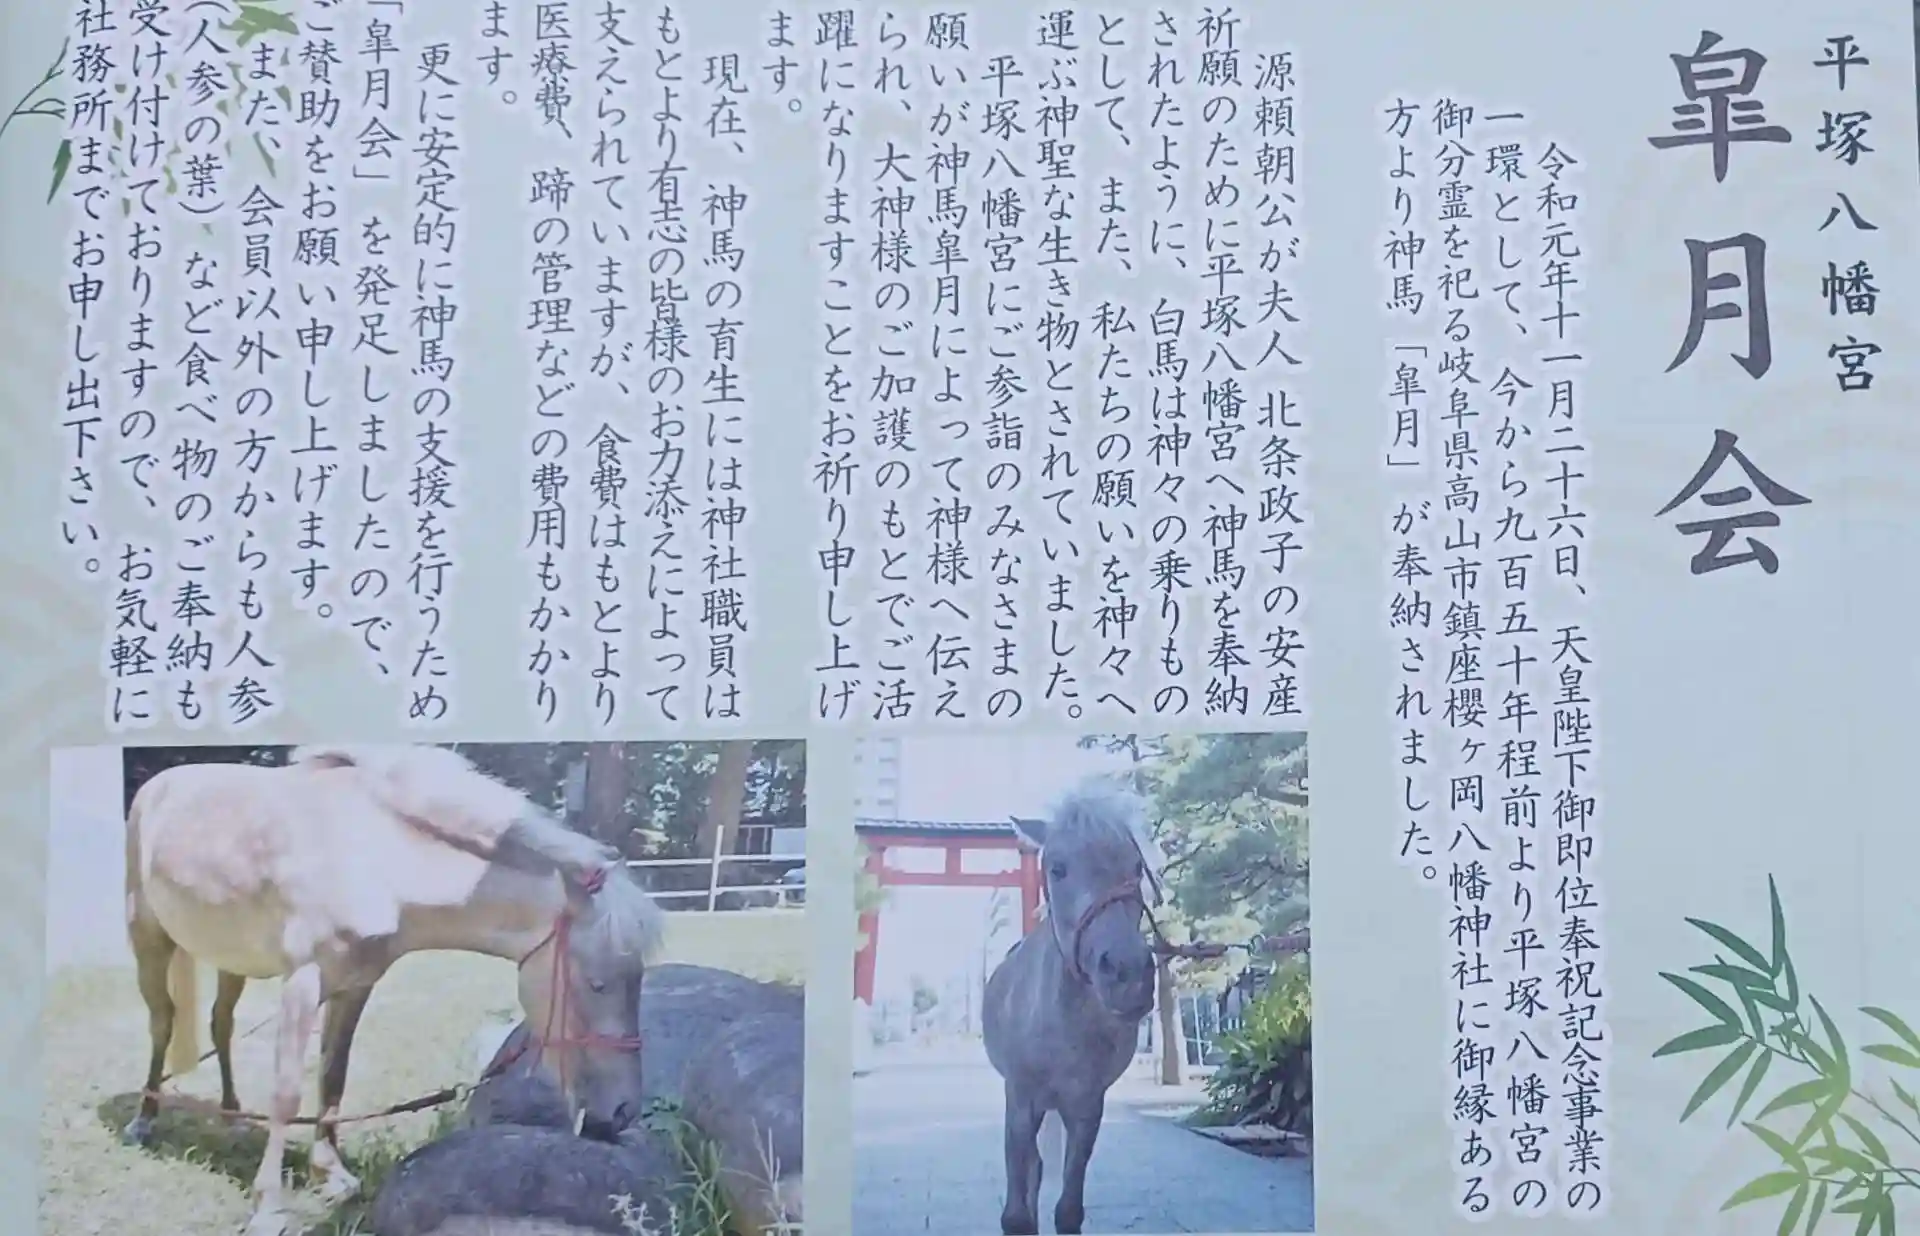 平塚八幡宮
皐月会
令和元年十一月二十六日、天皇陛下御即位奉祝記念事業の
一環として、今から九百五十年程前より平塚八幡宮の
御分霊を祀る岐阜県高山市鎮座櫻ヶ岡八幡神社に御縁ある
方より神馬「皐月」が奉納されました。
源頼朝公が夫人 北条政子の安産
祈願のために平塚八幡宮へ神馬を奉納
されたように、白馬は神々の乗りもの
として、また、私たちの願いを神々へ
運ぶ神聖な生き物とされていました。
平塚八幡宮にご参詣のみなさまの
願いが神馬皐月によって神様へ伝え
られ、大神様のご加護のもとでご活
躍になりますことをお祈り申し上げ
ます。
現在、神馬の育生には神社職員は
もとより有志の皆様のお力添えによって
支えられていますが、食費はもとより
医療費、蹄の管理などの費用もかかり
ます。
更に安定的に神馬の支援を行うため
「皐月会」を発足しましたので、
ご賛助をお願い申し上げます。
また、会員以外の方からも人参
(人参の葉)など食べ物のご奉納も
受け付けておりますので、お気軽に
社務所までお申し出下さい。